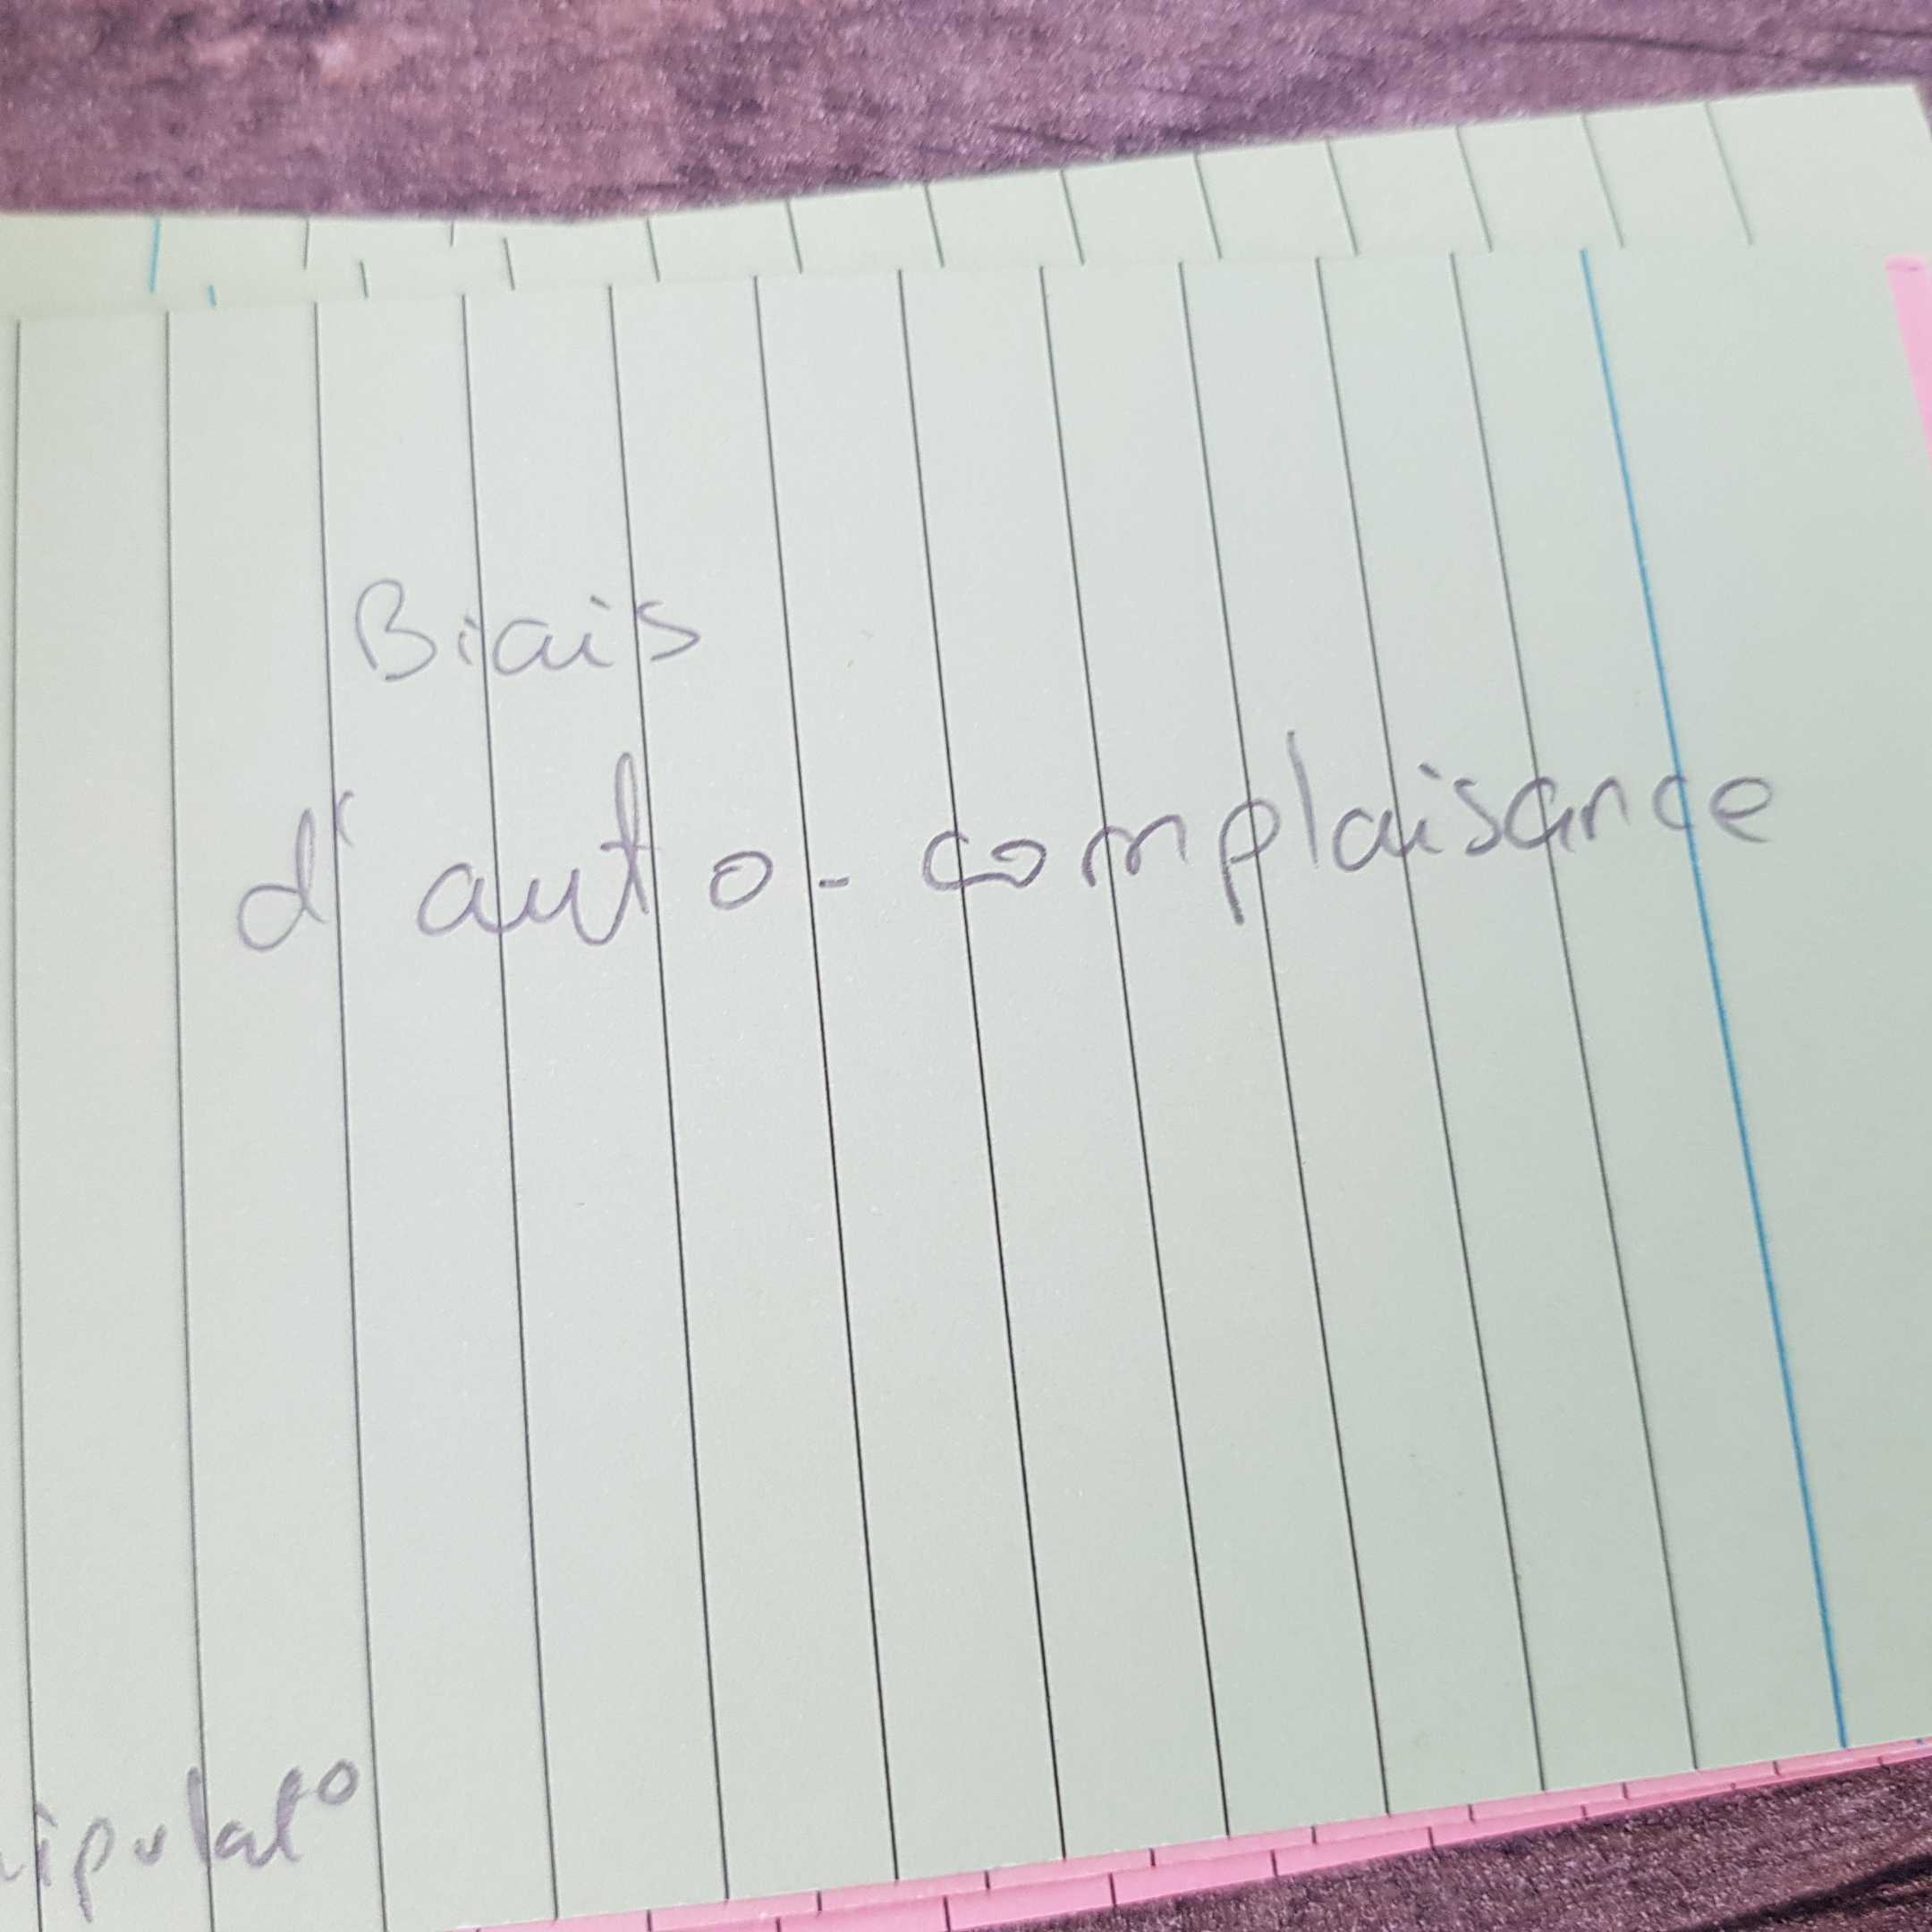 Biais
d'auto-complaisance
nipulat°